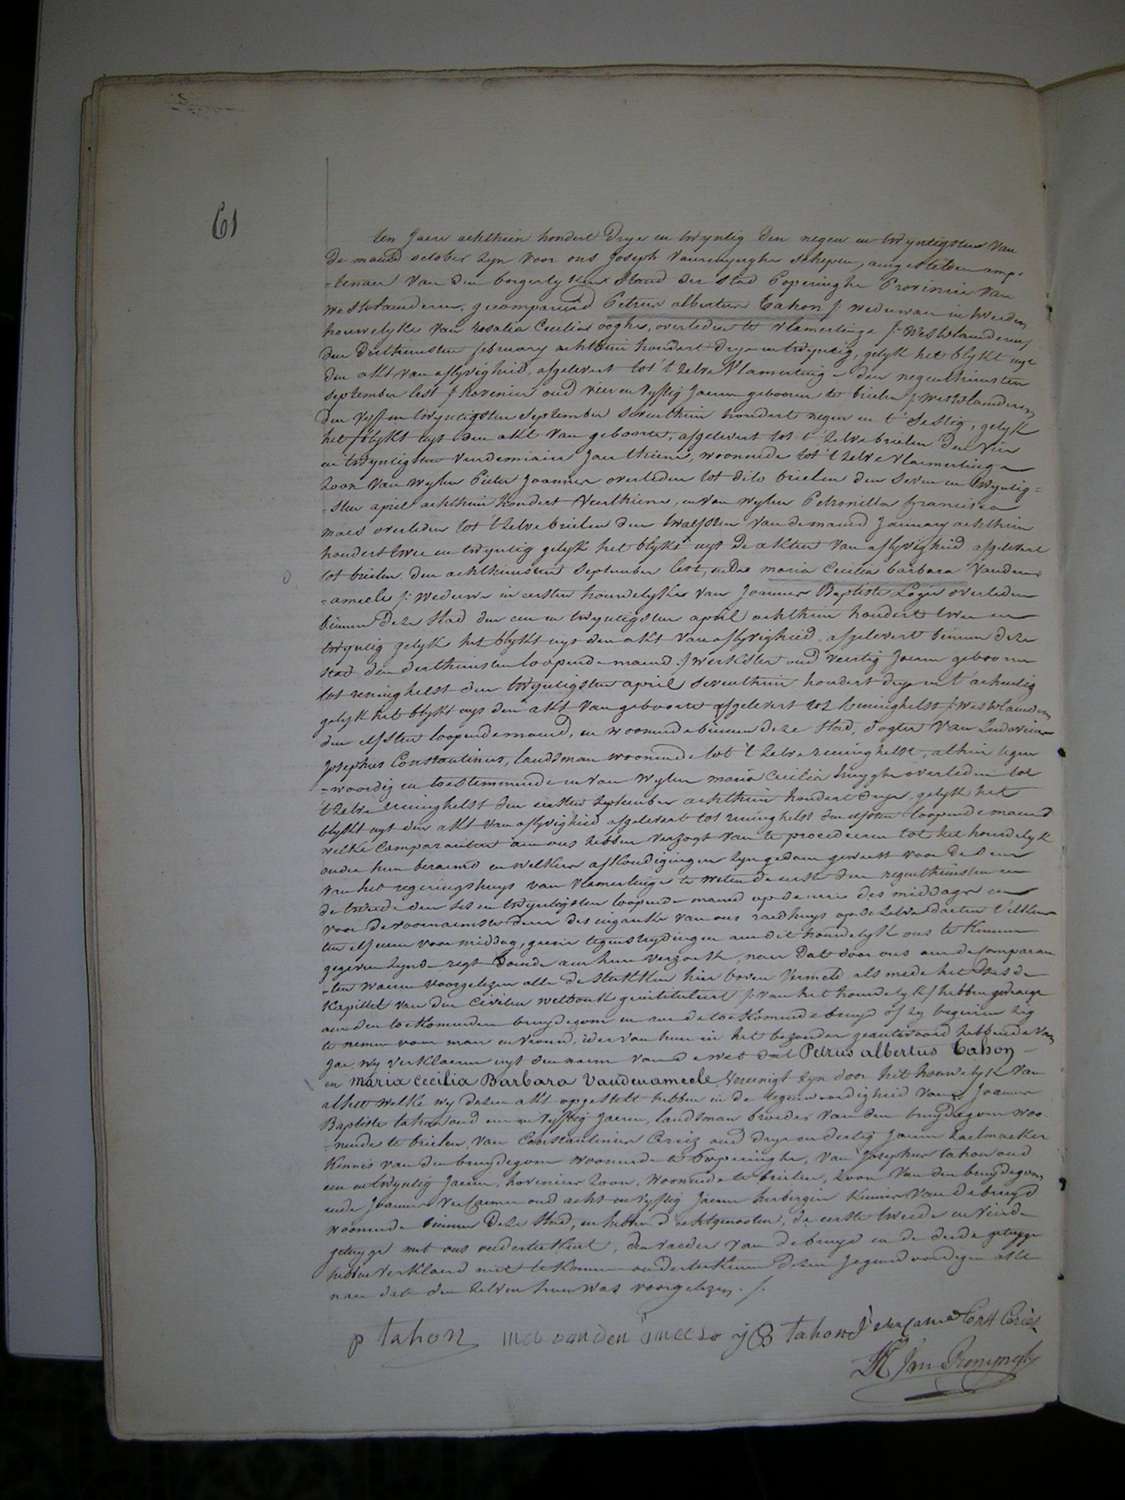 61
ten Jaere achthien hondert drye en twyntig den negen en twyntigsten van
de maend october zyn voor ons Joseph Vanrenynghe Schepen, aengestelden amp-
-tenaer van den borgerlyken Staud der Stad Poperinghe Provincie van
westvlaenderen, gecompareerd Petrus albertus Tahon /: weduwaer in tweeden
houwelyke van rosalia Cecilia ooghe, overleden te vlamertinge /: Westvlaenderen
den derthiensten february achthien hondert drye en twyntig, gelyk het blykt uyt
den akt van aflyvigheid, afgelevert tot 't zelve Vlamerting den negenthiensten
september lest /: hovenier oud vier en vyftig Jaeren gebooren te brielen /: westvlaenderen
den vyf en twyntigsten september seventhien hondert negen en t'sestig, gelyk
het blykt uyt den akt van geboorte, afgelevert tot t'zelve brielen den vier
en twyntigsten vendemiaire Jaer thiene, woonende tot 't zelve vlamertinge
zoon van wylen Pieter Joannes overleden tot dito brielen den seven en twyntig-
-sten april achthien hondert veerthiene, en van wylen Petronilla francisca
maes overleden tot t'zelve brielen den twalfsten van de maend January achthien
hondert twee en twyntig gelyk het blykt uyt de akten van aflyvigheid afgelevert
tot brielen den achthiensten september lest, ende maria Cecilia barbara Vanden-
-ameele /: weduwe in eersten houwelyke van Joannes Baptiste Logie overleden
binnen deze Stad den een en twyntigsten april achthien hondert twee en
twyntig gelyk het blykt uyt den akt van aflyvigheid afgelevert binnen deze
stad den derthiensten loopende maend :/ werkster oud veertig Jaeren gebooren
tot reninghelst den twyntigsten april seventhien hondert drye en t'achentig
gelyk het blykt uyt den akt van geboorte afgelevert tot Reninghelst /: westvlaenderen
den elfsten loopende maend, en woonende binnen deze Stad, dogter van Ludovicus
Josephus Constantinus, landsman woonende tot 't zelve reninghelst, alhier tegen
-woordig en toestemmende en van wylen maria Cecilia huyghe overleden tot
't zelve reninghelst den eersten september achthien hondert drye, gelyk het
blykt uyt den akt van aflyvigheid afgelevert tot reninghelst den elfsten loopende maend
welke Comparanten aen ons hebben verzogt van te procederen tot het houwelyk
onder hun beraemd en welkers afkondigingen zyn gedaen geweest voor de deure
van het regeringshuys van Vlamertinge te weten de eerste den negenthiensten en
de tweede den ses en twyntigsten loopende maend op de ure des middags en
voor de voornaemste deure des ingangs van ons raedhuys op de zelve daeten t'elkens
ten elf uren voor middag, geene tegenstrydingen aen dit houwelyk ons te kennen
gegeven zynde regt doende aen hun verzoek, naer dat door ons aen de comparan
-ten waeren voorgelezen alle de stukken hier boven vermeld als mede het Seste
kapittel van den civilen wetboek geintituleert /: van het houwelyk :/ hebben gevraegt
aen den toekomenden bruydegom en aen de toekomende bruyd of zy begeeren zig
te nemen voor man en vrouw, ider van hun in het bezonder geantwoord hebbende van
Jae wy verklaeren uyt den naem van de wet dat Petrus albertus Tahon
en maria Cecilia Barbara Vandenameele, vereenigt zyn door het houwelyk van
al het welke wy dezen akt opgestelt hebben in de tegenwoordigheid van Joannes
Baptiste tahon oud een en vyftig Jaeren, landsman broeder van den bruydegom woo-
-nende te brielen, van Constantinus Criez oud drye en dertig Jaeren
kennis van den bruydegom woonende te Poperinghe, van Josephus tahon oud
een en twyntig Jaeren, hoveniers zoon, woonende te brielen, zoon van den bruydegom
ende Joannes oud acht en vyftig Jaeren herbergier kennis van de bruyd
woonende binnen deze Stad, en hebben d'echtgenoten, de eerste tweede en vierde
getuyge met ons onderteekent, den vaeder van de bruyd en de derde getuyge
hebben verklaerd niet te konnen onderteekenen dezen tegenwoordigen akt
naer dat den zelven hun was voorgelezen. /.
p tahon mc vanden ameele j B tahon